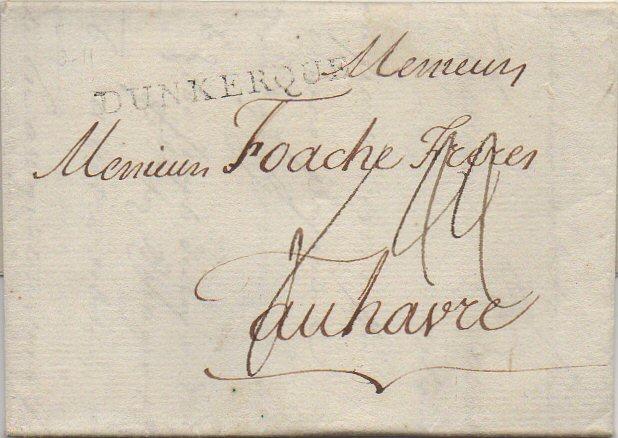 DUNKERQUE
Messieurs
Messieurs Foache Freres
au havre